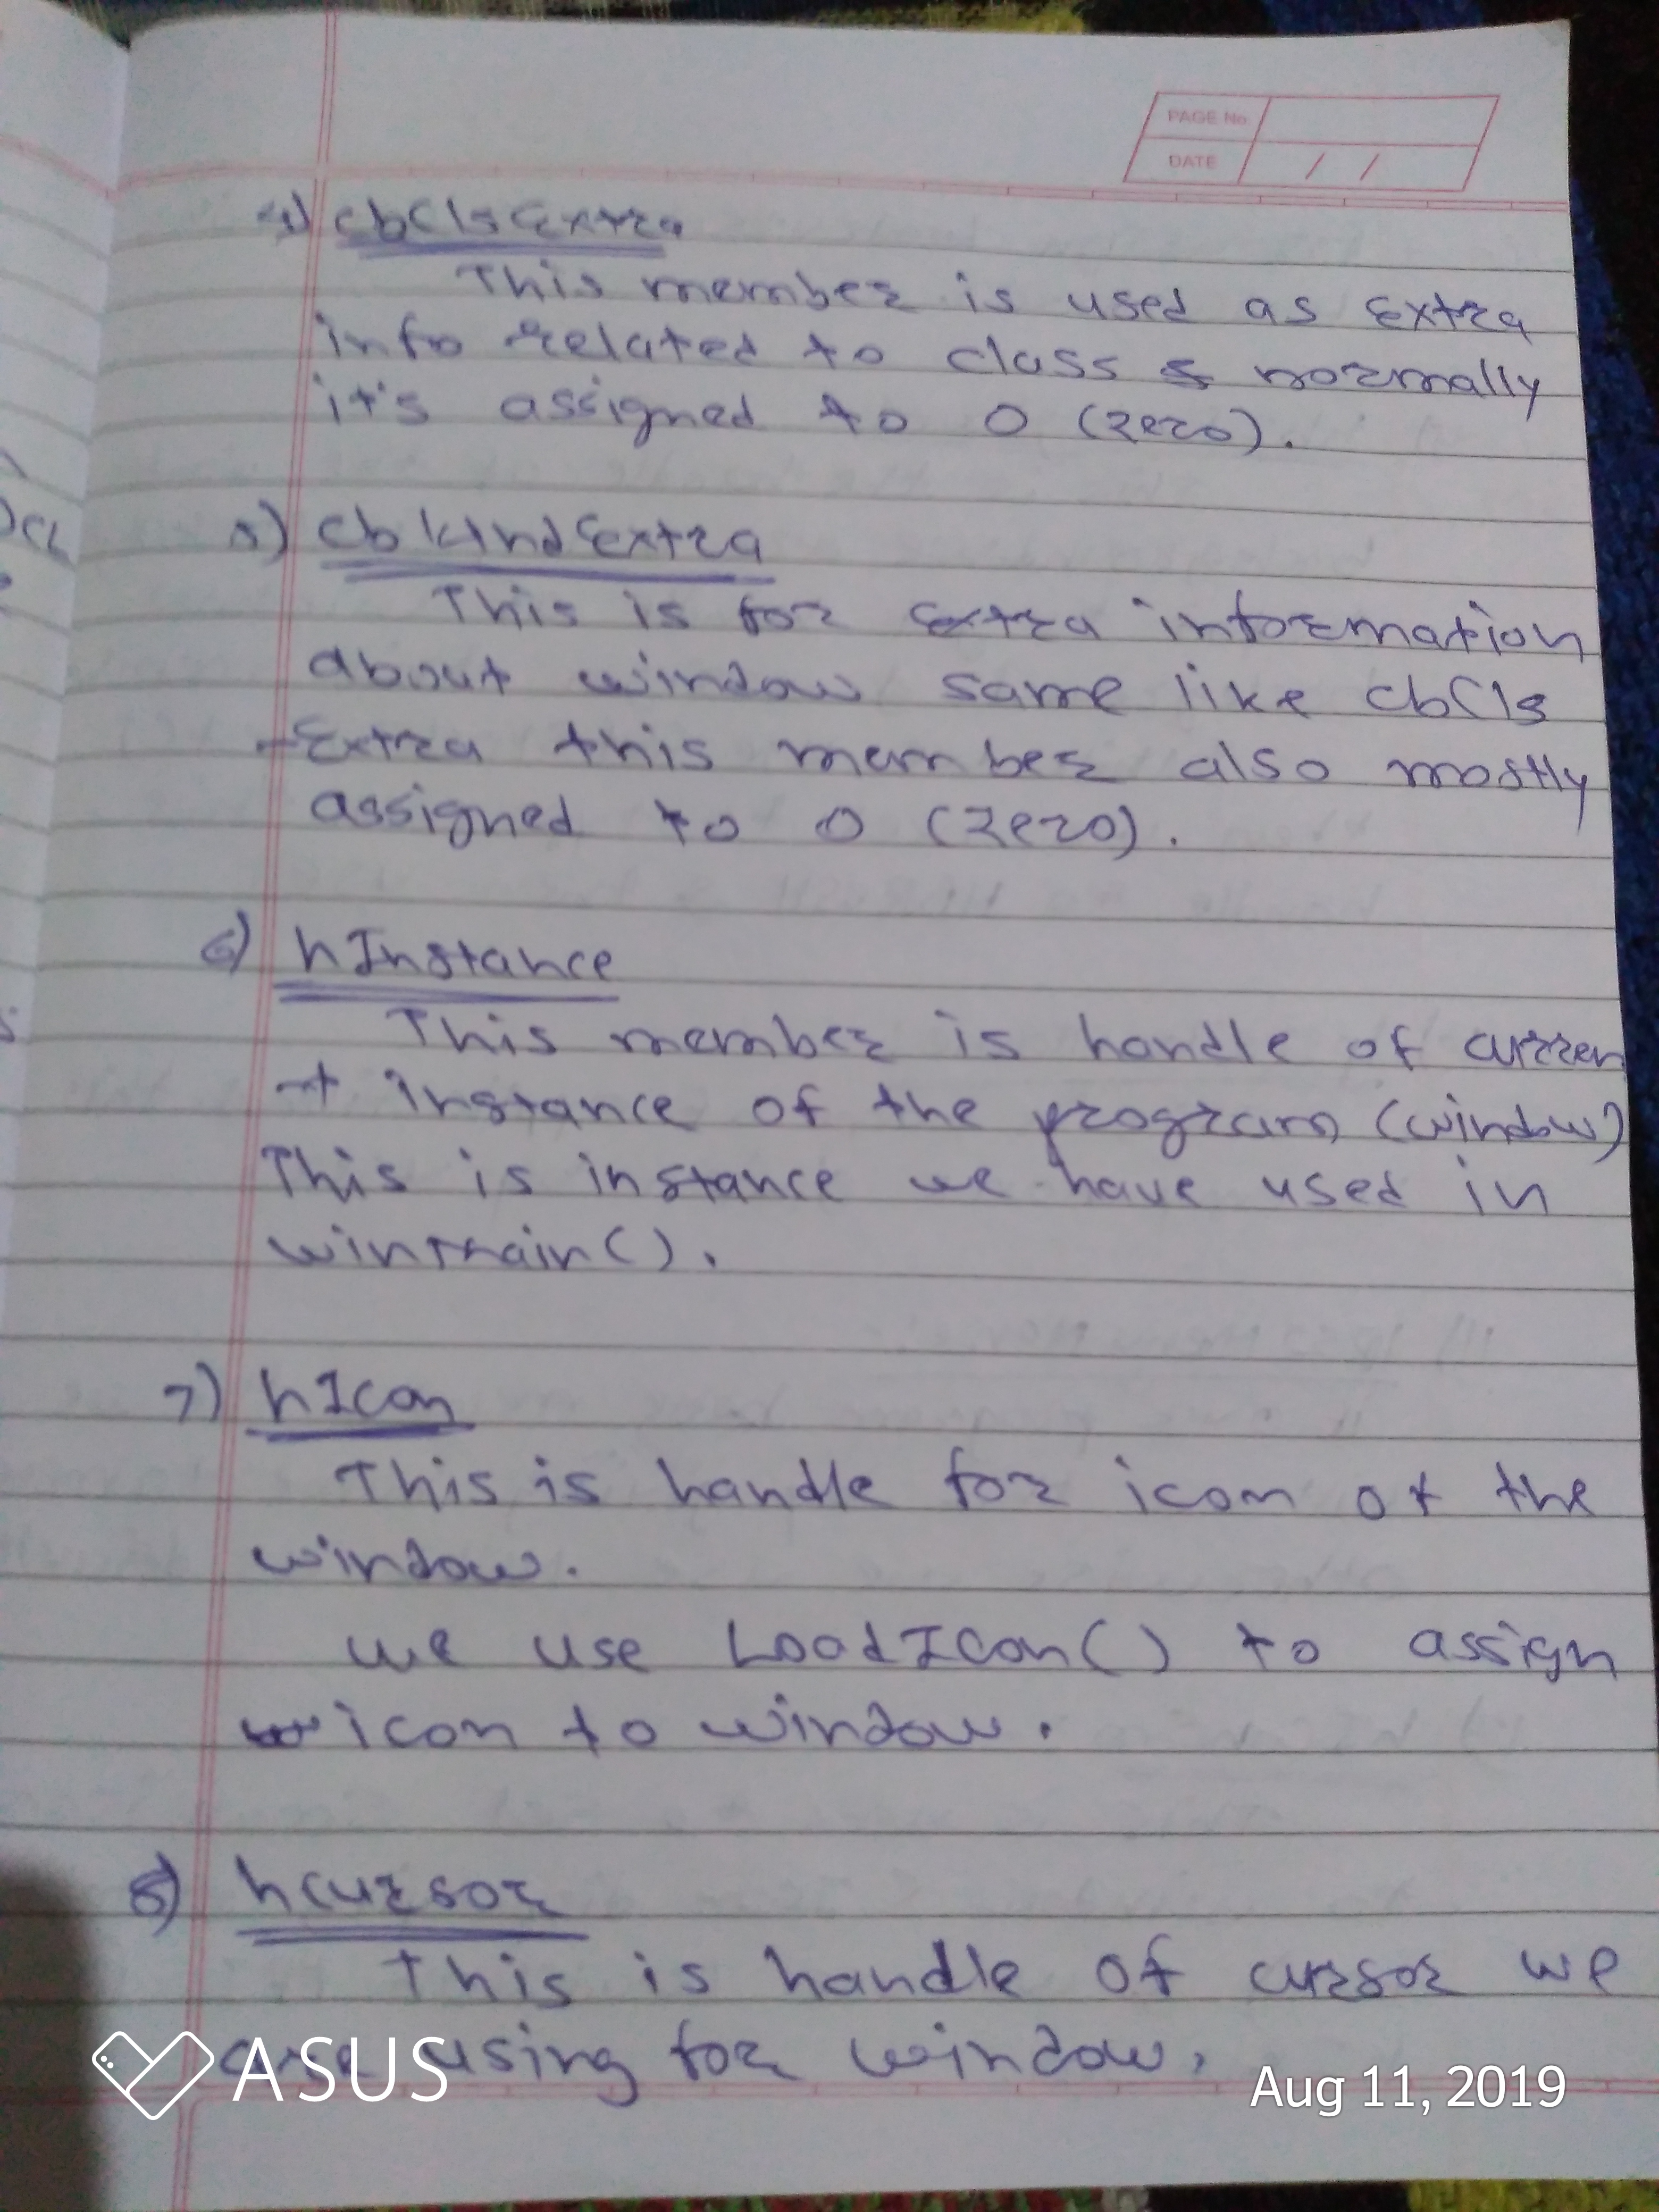 PAGE No
DATE / /
4) cbClsExtra
This member is used as Extra
info related to class & normally
it's assigned to 0 (zero).
5) cbWndExtra
This is for extra information
about window same like cbCls
-Extra this member also mostly
assigned to 0 (zero).
6) hInstance
This member is handle of curren
-t instance of the program (window)
This is instance we have used in
winmain().
7) hIcon
This is handle for icon of the
window.
we use LoadIcon() to assign
icon to window.
8) hcursor
This is handle of cursor we
are using for window.
ASUS
Aug 11, 2019